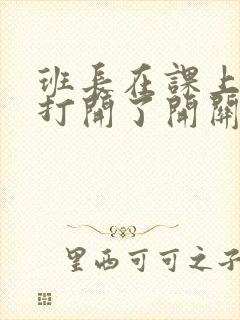 班长在課上
打開了開關
里西可可之子